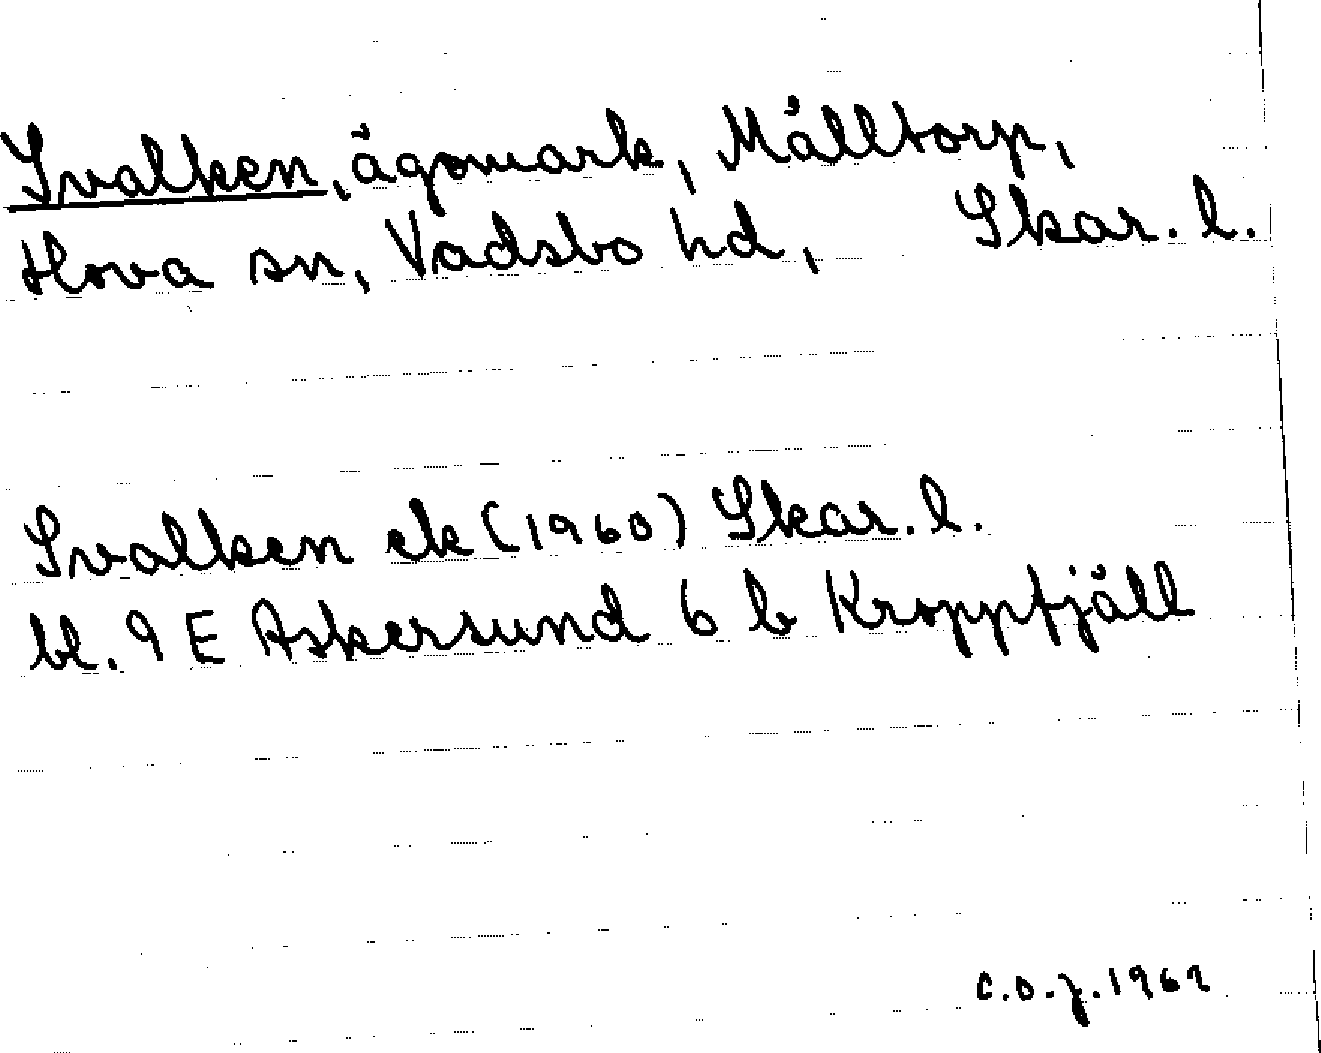 Svalken, ägomark, Målltorp,
Hova sn, Vadsbo hd, Skar. l.
Svalken ek (1960) Skar. l.
bl. 9 E Askersund 6 b Kroppfjäll
C.O.J. 1962